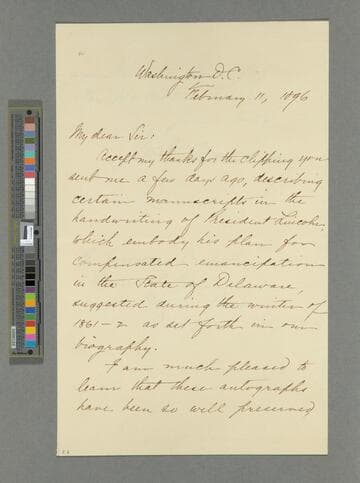 Washington D.C.
February 11, 1896
My dear Sir:
Accept my thanks for the clipping you
sent me a few days ago, describing
certain manuscripts in the
handwriting of President Lincoln,
which embody his plan for
compensated emancipation
in the State of Delaware,
suggested during the winter of
1861-2 as set forth in our
biography.
I am much pleased to
learn that these autographs
have been so well preserved